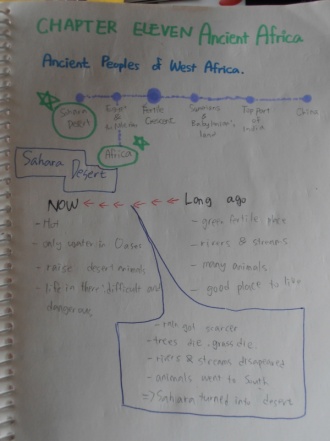 CHAPTER ELEVEN Ancient Africa
Ancient Peoples of West Africa.
Sahara Desert
Egypt &
Fertile Crescent
Sumerians & Babylonian's land
Top part of India
China
Africa
Sahara Desert
NOW ← ← ← ← ← Long ago
- Hot
- only water in Oases
- raise desert animals
- life in there: difficult and dangerous
- green fertile place
- rivers & streams
- many animals
- good place to live
- rain got scarcer
- trees die, grass die.
- rivers & streams disappeared
- animals went to South
=> Sahara turned into desert